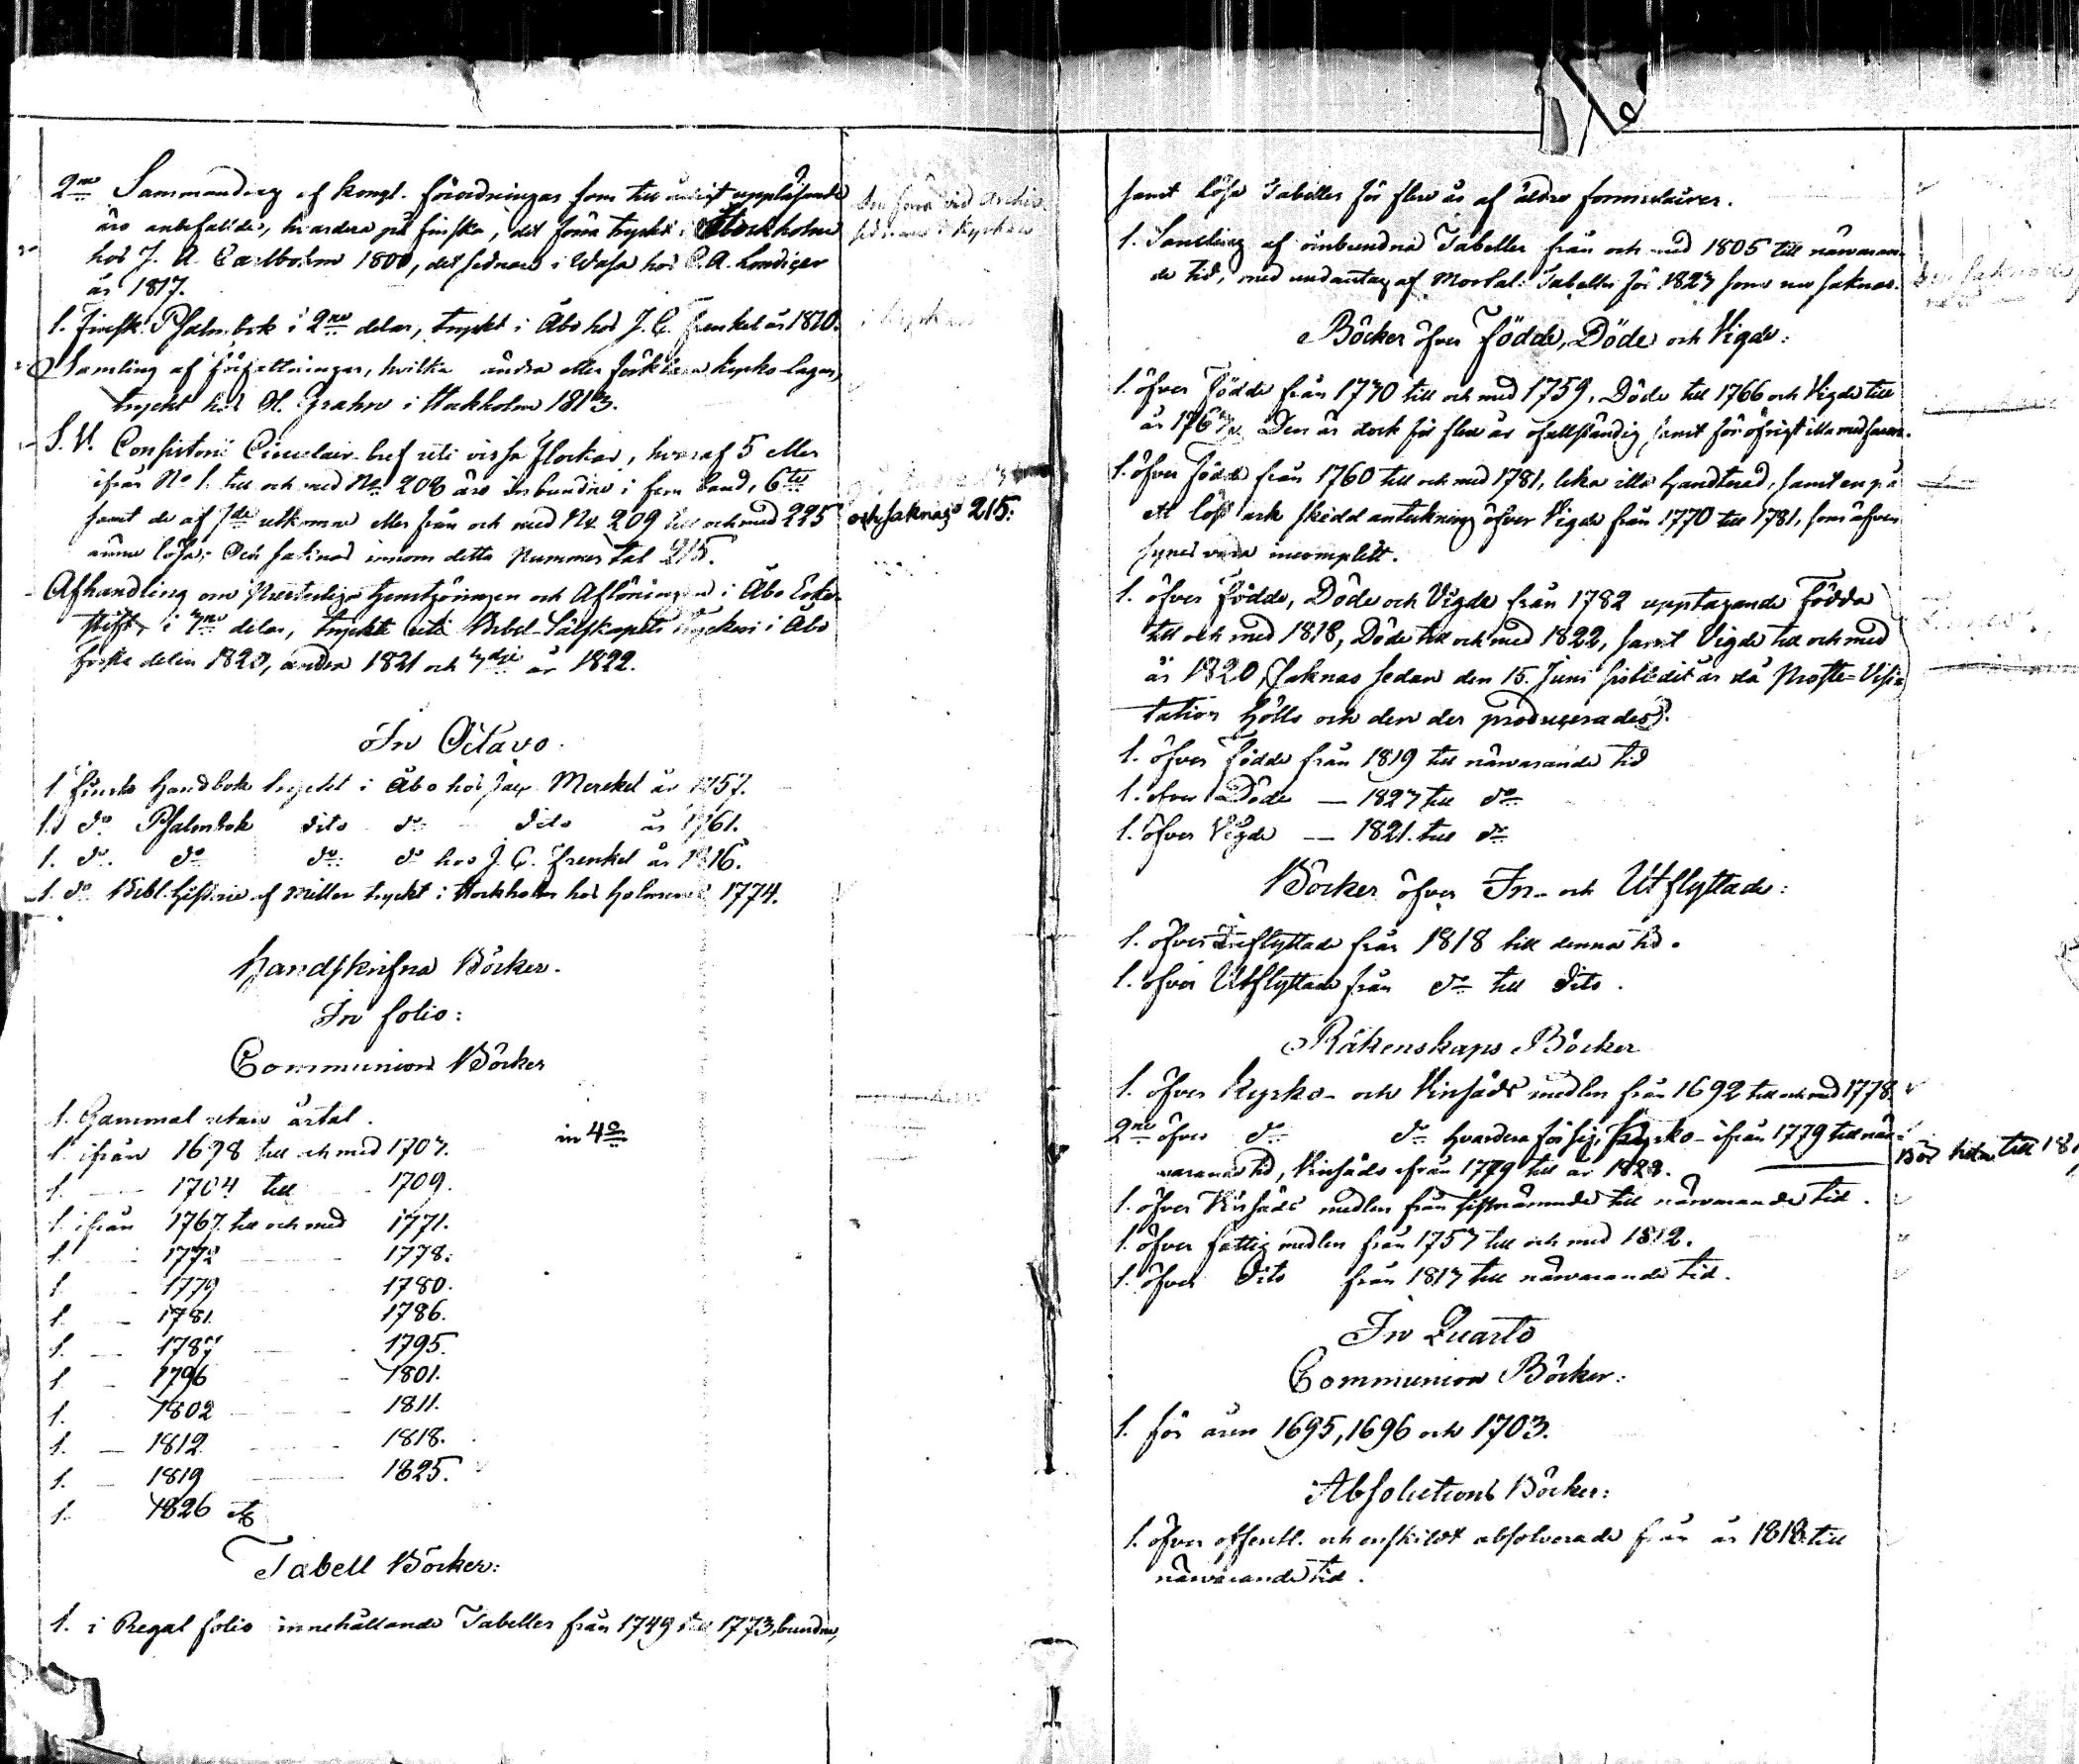 2ne Sammandrag af Kongl. Förordningar som till årligt uppläsande
äro anbefallde, hvardera på finska, det förra tryckt i Stockholm
hos J. A. Carlbohm 1800, det sednare i Wasa hos C. A. Londicer
år 1817.
1. Finsk Psalmbok i 2ne delar, tryckt i Åbo hos J. C. Frenkel år 1810.
Samling af författningar, hvilka ändra eller förklara kyrko-lagen,
tryckt hos H. Grahn i Stockholm 1813.
S. V. Consistorii Circulair-bref uti vissa Flockar, hvaraf 5 eller
ifrån No 1. till och med No 208 äro inbundne i fem band, 6te
samt de af 7de utkomne eller från och med No 209 till och med 225
ännu lösa; Och saknas innom detta Nummer tal 215.
Afhandling om Presterliga tjenstgöringen och Aflöningen i Åbo Erke-
stift, i 3ne delar, tryckte uti Bibel-Sälskapets tryckeri i Åbo
första delen 1820, andra 1821 och 3dje år 1822.
den förra vid Archiv.
sednare i Kyrkan
i kyrkan
och saknas 215:
In Octavo.
1 Finsk Handbok tryckt i Åbo hos Jac. Merckel år 1757.
1. do Psalmbok dito do dito år 1761.
1. do do do do hos J. C. Frenkel år 1816.
1. do Bibl. Historie af Miller tryckt i Stockholm hos Holmerus 1774.
Handskrifna Böcker.
In folio:
Communion Böcker
1. Gammal utan årtal.
1. ifrån 1698 till och med 1703. in 4o
1. — 1704 till 1709.
1. ifrån 1767 till och med 1771.
1. — 1772 — 1778.
1. — 1779 — 1780.
1. — 1781. — 1786.
1. — 1787 — 1795.
1. — 1796 — 1801.
1. — 1802 — 1811.
1. — 1812 — 1818.
1. — 1819 — 1825.
1. 1826 etc
Tabell Böcker:
1. i Regal folio innehållande Tabeller från 1749 till 1773, bundne,
samt lösa Tabeller för flere år af äldre formulairer.
1. Samling af oinbundna Tabeller från och med 1805 till närvaran-
de tid, med undantag af Mortal. Tabellen för 1823 som nu saknas.
Böcker öfver Födde, Döde och Vigde:
1. öfver Födde från 1730 till och med 1759, Döde till 1766 och Vigde till
år 1767. Den är dock för flera år ofullständig samt för öfrigt illa medfaren.
1. öfver Födde från 1760 till och med 1781, lika illa handterad, samt en på
ett löst ark skedd antekning öfver Vigde från 1770 till 1781, som äfven
synes vara incomplett.
1. öfver Födde, Döde och Vigde från 1782 upptagande Födda
till och med 1818, Döde till och med 1822, samt Vigde till och med
år 1820, (saknas sedan den 15. Juni sistledit år då Proste-Visi-
tation hölls och den der producerades).
1. öfver Födde från 1819 till närvarande tid
1. öfver Döde — 1823 till do
1. öfver Vigde — 1821. till do
Böcker öfver In- och Utflyttade:
1. öfver Inflyttade från 1818 till denna tid.
1. öfver Utflyttade från do till dito.
Räkenskaps Böcker
1. öfver Kyrko- och Vinsäds medlen från 1692 till och med 1778.
2ne öfver do do hvardera för sig, Kyrko- ifrån 1779 till när-
varande tid, Vinsäds ifrån 1779 till år 1823.
Bör heta till 181
1. öfver Vinsäds medlen från sistnämnde till närvarande tid.
1. öfver fattig medlen från 1753 till och med 1812.
1. öfver dito från 1813 till närvarande tid.
In Quarto
Communion Böcker:
1. för åren 1695, 1696 och 1703.
Absolutions Böcker:
1. öfver offentl. och enskildt absolverade från år 1818 till
närvarande tid.